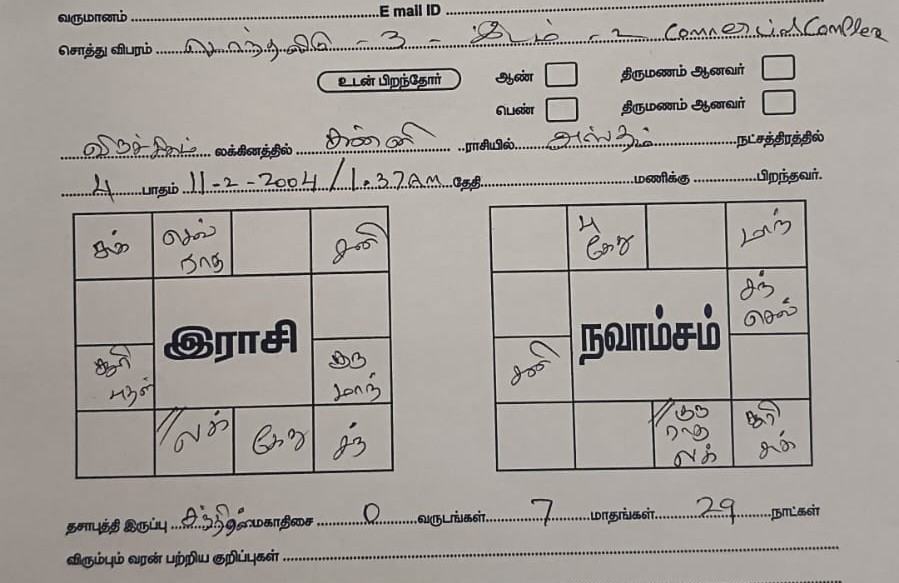 வருமானம் ........ E mail ID ........
சொத்து விபரம் சொந்தவீடு - 3 - இடம் - 2
உடன் பிறந்தோர் ஆண் திருமணம் ஆனவர்
பெண் திருமணம் ஆனவர்
விருச்சிகம் லக்கினத்தில் கன்னி ராசியில் அஸ்தம் நட்சத்திரத்தில்
4 பாதம் 11-2-2004 / 1.37AM தேதி ........ மணிக்கு ........ பிறந்தவர்.
சுக் செவ் ராகு சனி
இராசி
சூரி புதன் குரு மாந்
லக் கேது சந்
பு கேது மாந்
சந் செவ்
நவாம்சம்
சனி
குரு ராகு லக் சூரி சுக்
தசாபுத்தி இருப்பு சந்திரன் மகாதிசை 0 வருடங்கள் 7 மாதங்கள் 29 நாட்கள்
விரும்பும் வரன் பற்றிய குறிப்புகள் ........